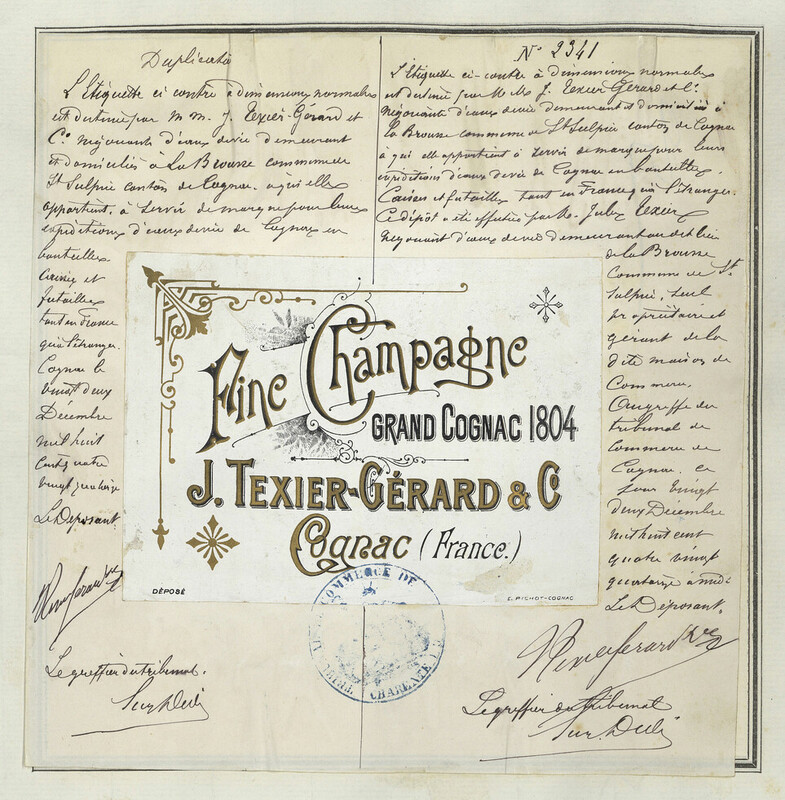 Duplicata
L'Etiquette ci contre a dimensions normales
est destinée par M M. J. Texier-Gérard et
Cº négociants d'eaux de vie demeurant
et domiciliés a La Brousse commune de
St Sulpice canton de Cognac. a qui elle
appartient, à servir de marque pour leurs
expéditions d'eaux de vie de Cognac en
bouteilles
caisses et
futailles
tant en France
qu'à l'étranger.
Cognac le
vingt deux
Décembre
mil huit
cent quatre
vingt quatorze
Le Déposant
Le greffier du tribunal.
Nº 2341
L'Etiquette ci-contre à dimensions normales
est destinée par M M. J. Texier Gérard et Cº.
négociants d'eaux de vie demeurant et domiciliés à
la Brousse commune de St Sulpice canton de Cognac
à qui elle appartient à servir de marque pour leurs
expéditions d'eaux de vie de Cognac en bouteilles.
Caisses et futailles tant en France qu'à l'étranger.
Ce dépôt a été effectué par M. Jules Texier
négociant d'eaux de vie demeurant au dit lieu
de la Brousse
Commune de St
Sulpice, seul
propriétaire et
gérant de la
dite maison de
Commerce.
Au greffe du
tribunal de
Commerce de
Cognac. ce
jour vingt
deux Décembre
mil huit cent
quatre vingt
quatorze a midi
Le Déposant.
Le greffier du Tribunal
Fine Champagne
GRAND COGNAC 1804
J. TEXIER-GÉRARD & Cº
Cognac (France.)
DÉPOSÉ
E. PICHOT-COGNAC
COMMERCE DE
CHARENTE